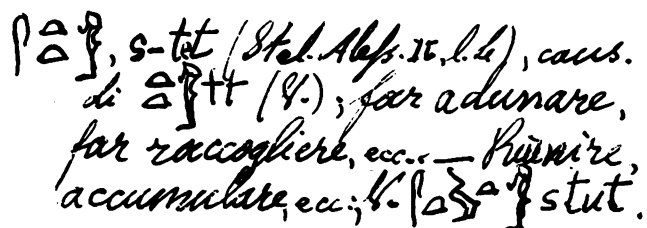 𓋴𓏏𓏏, s-tet (Stel. Aless. II, l. 4), caus.
di 𓏏𓏏 tt (V.); far adunare,
far raccogliere, ecc. — Riunire,
accumulare, ecc.; V. stut.